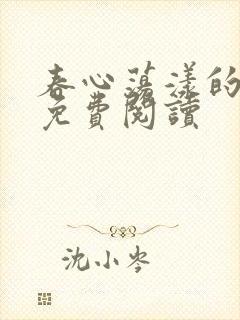 春心荡漾的
免費閱讀
沈小岑